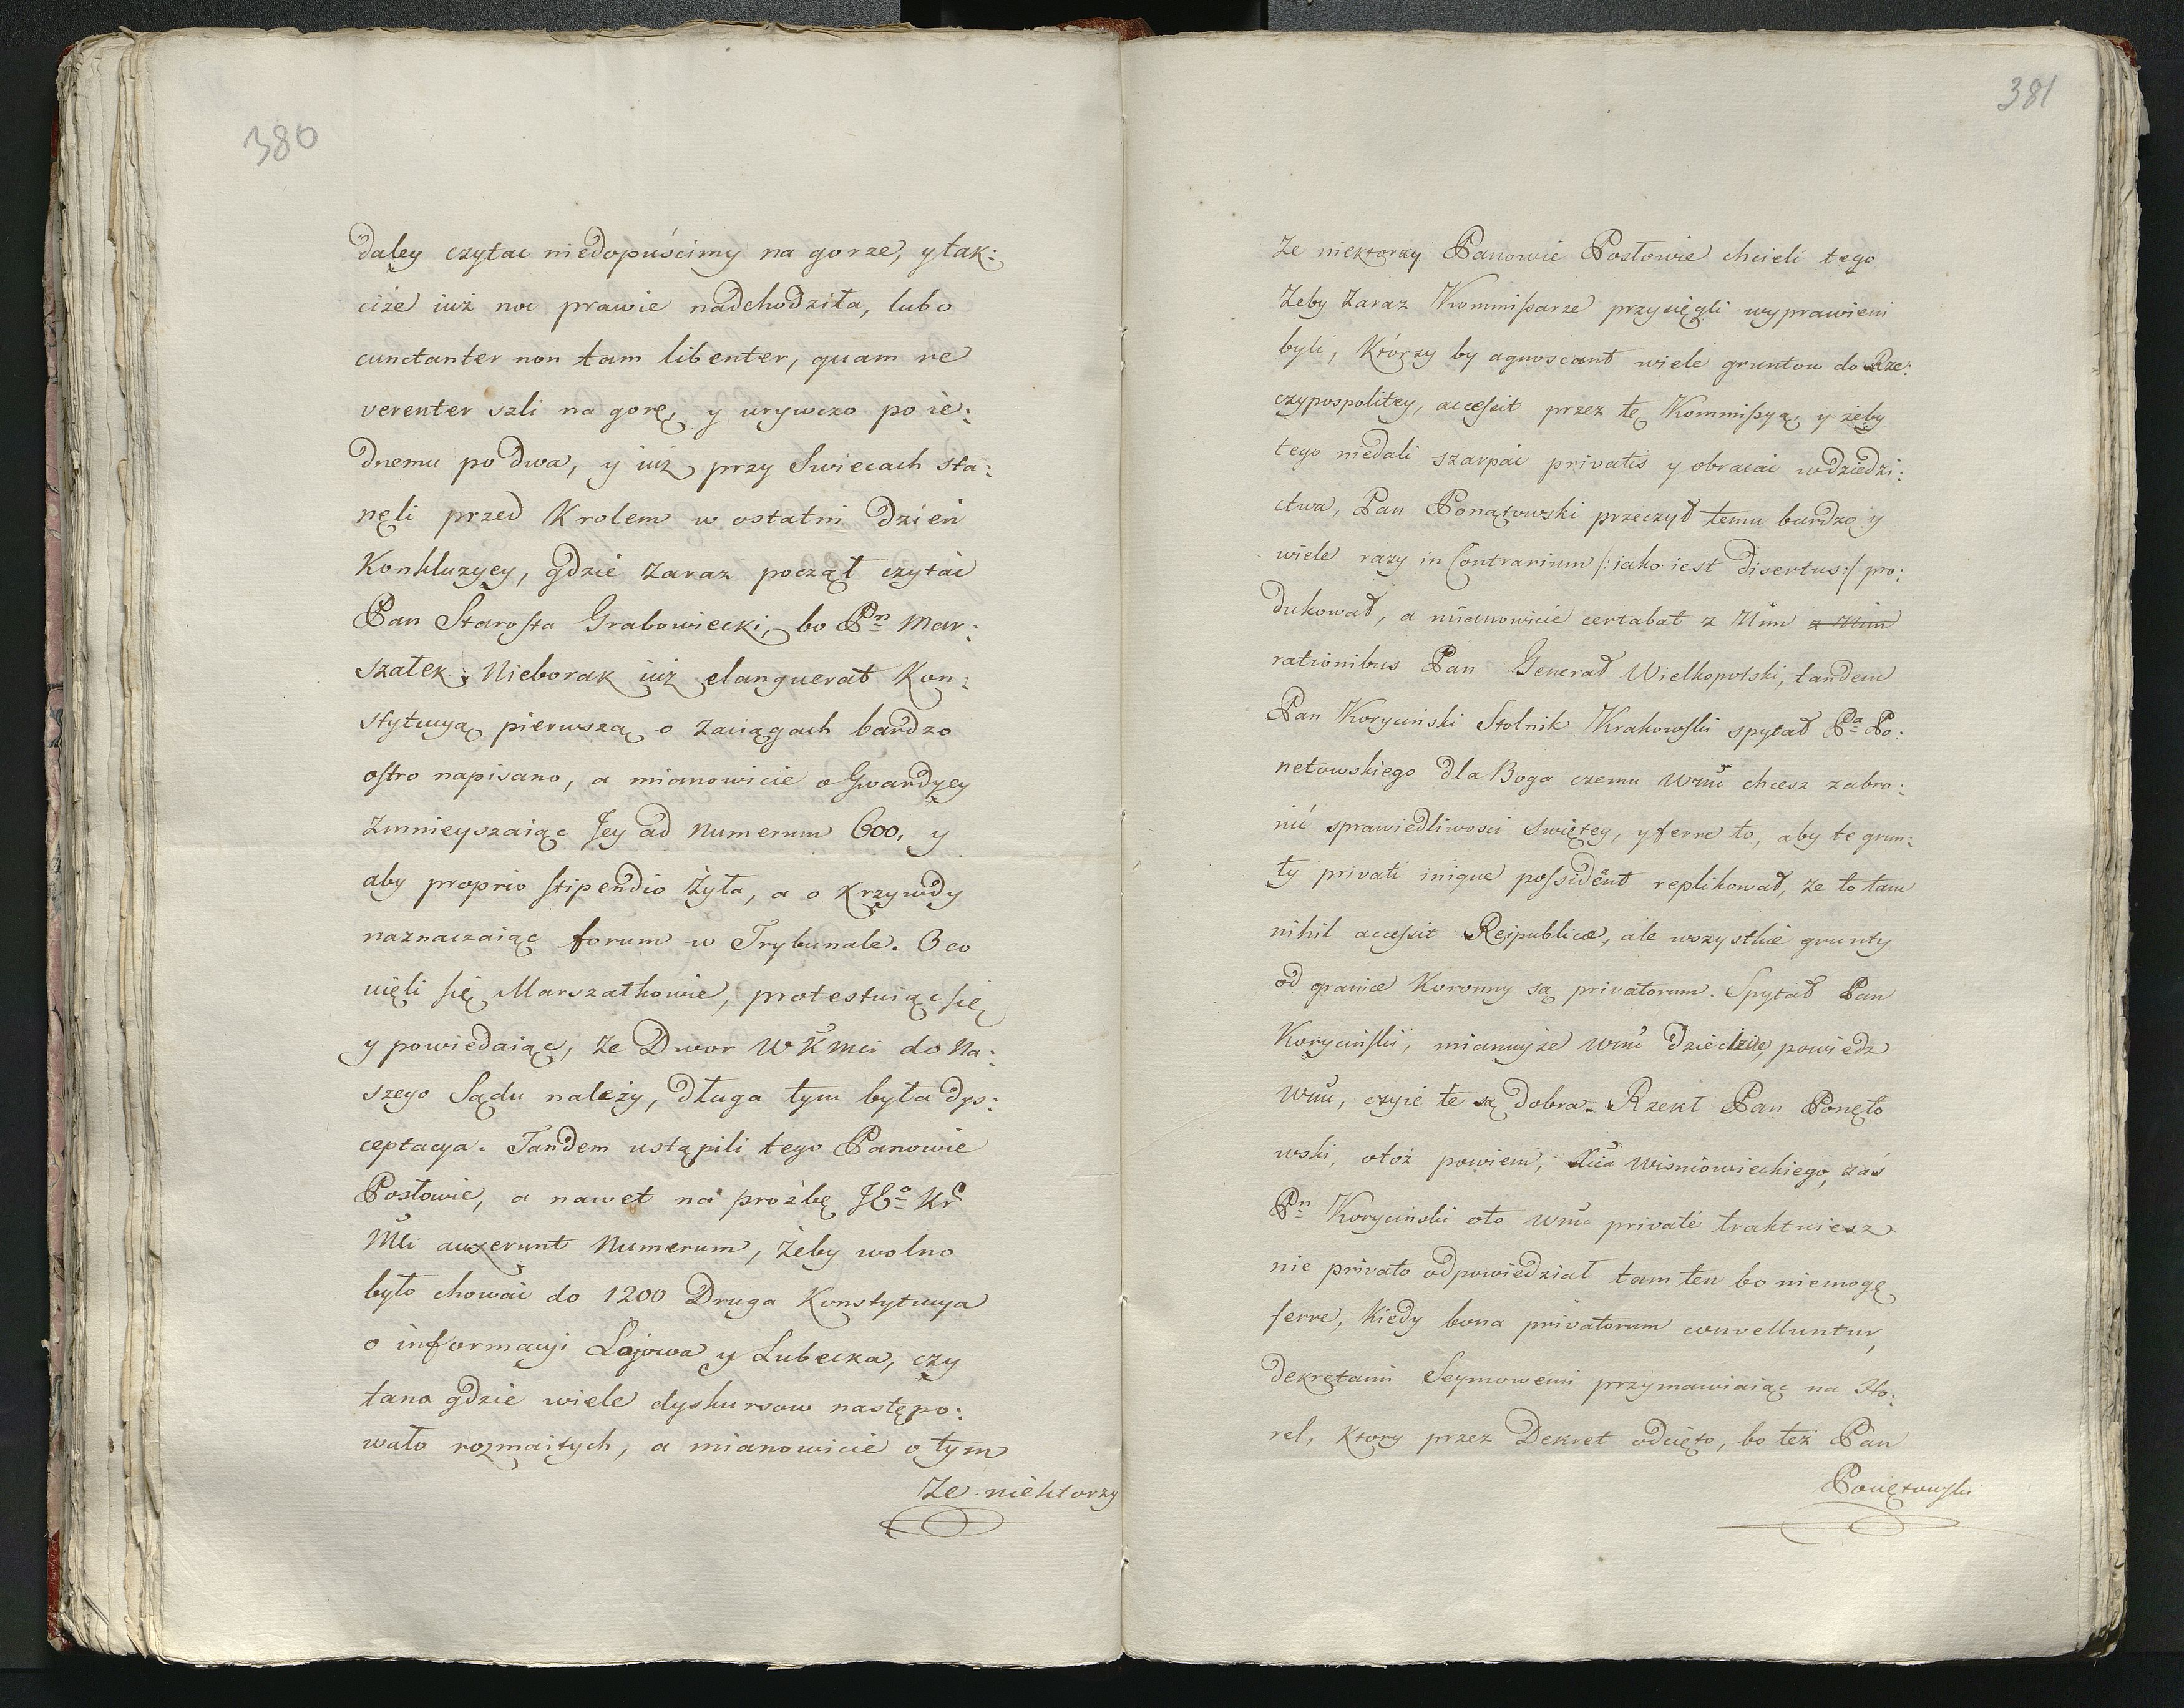 380
daley czytac niedopuścimy na gorze, y tak:
ciże iuż noc prawie nadchodziła, lubo
cunctanter non tam libenter, quam re
verenter szli na gorę, y urywczo po ie:
dnemu po dwa, y iuż przy Swiecach sta:
nęli przed Krolem w ostatni Dzień
Konkluzyey, gdzie zaraz począł czytać
Pan Starosta Grabowiecki, bo Pn Mar:
szałek Nieborak iuż elanguerat Kon:
stytucyą pierwszą o zaciągach bardzo
ostro napisano, a mianowicie o Gwardyey
Zmnieyszaiąc Jey ad Numerum 600, y
aby proprio stipendio żyła, a o Krzywdy
naznaczaiąc forum w Trybunale. O co
uięli się Marszałkowie, protestuiąc się
y powiedaiąc, że Dwor WKMci do Na:
szego Sądu należy, długa tym była dys:
ceptacya. Tandem ustąpili tego Panowie
Posłowie, a nawet na prożbę JEo Kr
Mci auxerunt Numerum, żeby wolno
było chować do 1200 Druga Konstytucya
o informacyi Lojowa y Lubecza, czy
tano gdzie wiele dyskursow następo:
wało rozmaitych, a mianowicie o tym
Ze niektorzy
381
Ze niektorzy Panowie Posłowie chcieli tego
Zeby zaraz Kommissarze przysięgli wyprawieni
byli, Którzy by agnoscant wiele gruntow do Rze:
czypospolitey, accessit przez tę Kommissyą, y żeby
tego niedali szarpać privatis y obracać w dziedzi:
ctwa, Pan Ponątowski przeczył temu bardzo y
wiele razy in Contrarium /:iako iest disertus:/ pro:
dukował, a mianowicie certabat z Nim z Nim
rationibus Pan Generał Wielkopolski, tandem
Pan Koryciński Stolnik Krakowski spytał Pa Po:
netowskiego dla Boga czemu Wmć chcesz zabro:
nić sprawiedliwosci Swiętey, y ferre to, aby te grun:
ty privati inique possident replikował, że to tam
nihil accessit Reipublicæ, ale wszystkie grunty
od granice Koronny są privatorum. Spytał Pan
Koryciński, mianuyże Wmć Dziedzice, powiedz
Wmć, czyie te są dobra. Rzekł Pan Ponęto
wski, otoż powiem, Xcia Wisniowieckiego, zaś
Pn Koryciński oto Wmć privaté traktuiesz
nie privato odpowiedział tam ten bo niemogę
ferre, Kiedy bona privatorum convelluntur,
dekretami Seymowemi przymawiaiąc na Ho:
rel, Ktory przez Dekret odcięto, bo też Pan
Ponętowski